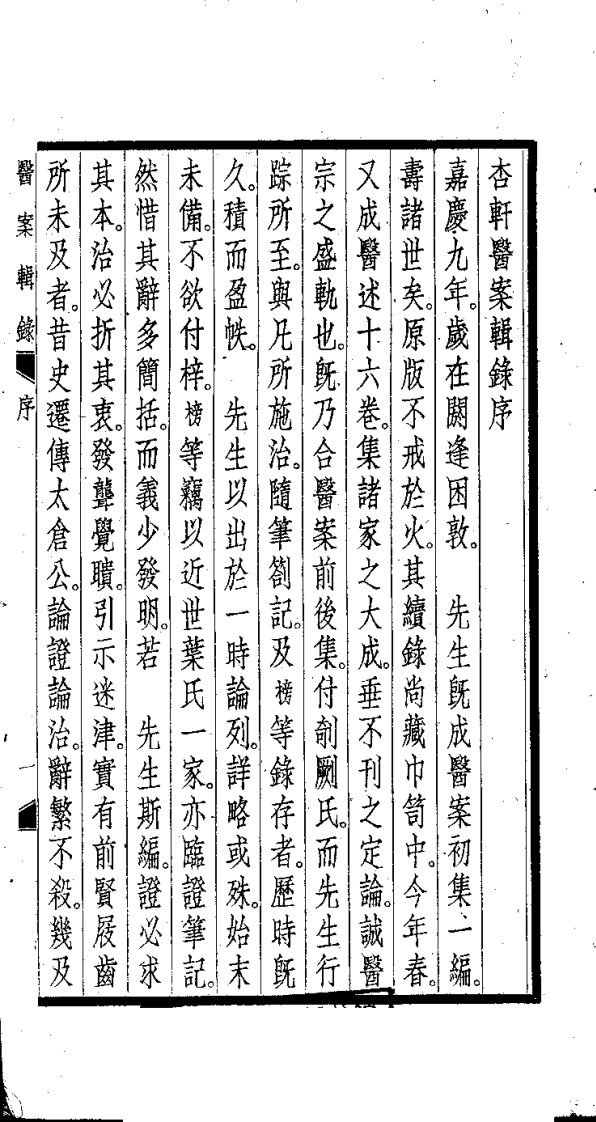 杏軒醫案輯錄序
嘉慶九年。歲在閼逢困敦。　先生旣成醫案初集一編。
壽諸世矣。原版不戒於火。其續錄尚藏巾笥中。今年春。
又成醫述十六卷。集諸家之大成。垂不刊之定論。誠醫
宗之盛軌也。旣乃合醫案前後集。付剞劂氏。而先生行
踪所至。與凡所施治。隨筆劄記。及榜等錄存者。歷時旣
久。積而盈帙。　先生以出於一時論列。詳略或殊。始末
未備。不欲付梓。榜等竊以近世葉氏一家。亦臨證筆記。
然惜其辭多簡括。而義少發明。若　先生斯編。證必求
其本。治必折其衷。發聾覺聵。引示迷津。實有前賢屐齒
所未及者。昔史遷傳太倉公。論證論治。辭繁不殺。幾及
醫案輯錄　序　一